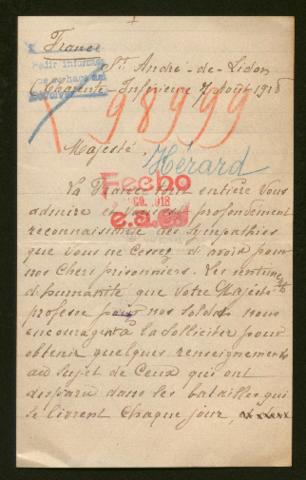 France
St André-de-Lidon
Charente-Inférieure 7 Août 1918
Pedir informes
98999
Majesté.
Hérard
La France tout entière vous
admire et vous est profondement
reconnaissante des sympathies
Fecho
que vous ne cessez d'avoir pour
nos chers prisonniers. Les sentime
nts
d'humanité que votre Majesté
professe pour nos soldats nous
encouragent à la solliciter pour
obtenir quelques renseignements
au sujet de ceux qui ont
disparu dans les batailles qui
se livrent chaque jour,